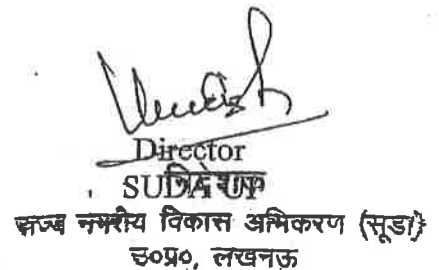 Director
SUDA UP
निदेशक
राज्य नगरीय विकास अभिकरण (सूडा)
उ०प्र०, लखनऊ